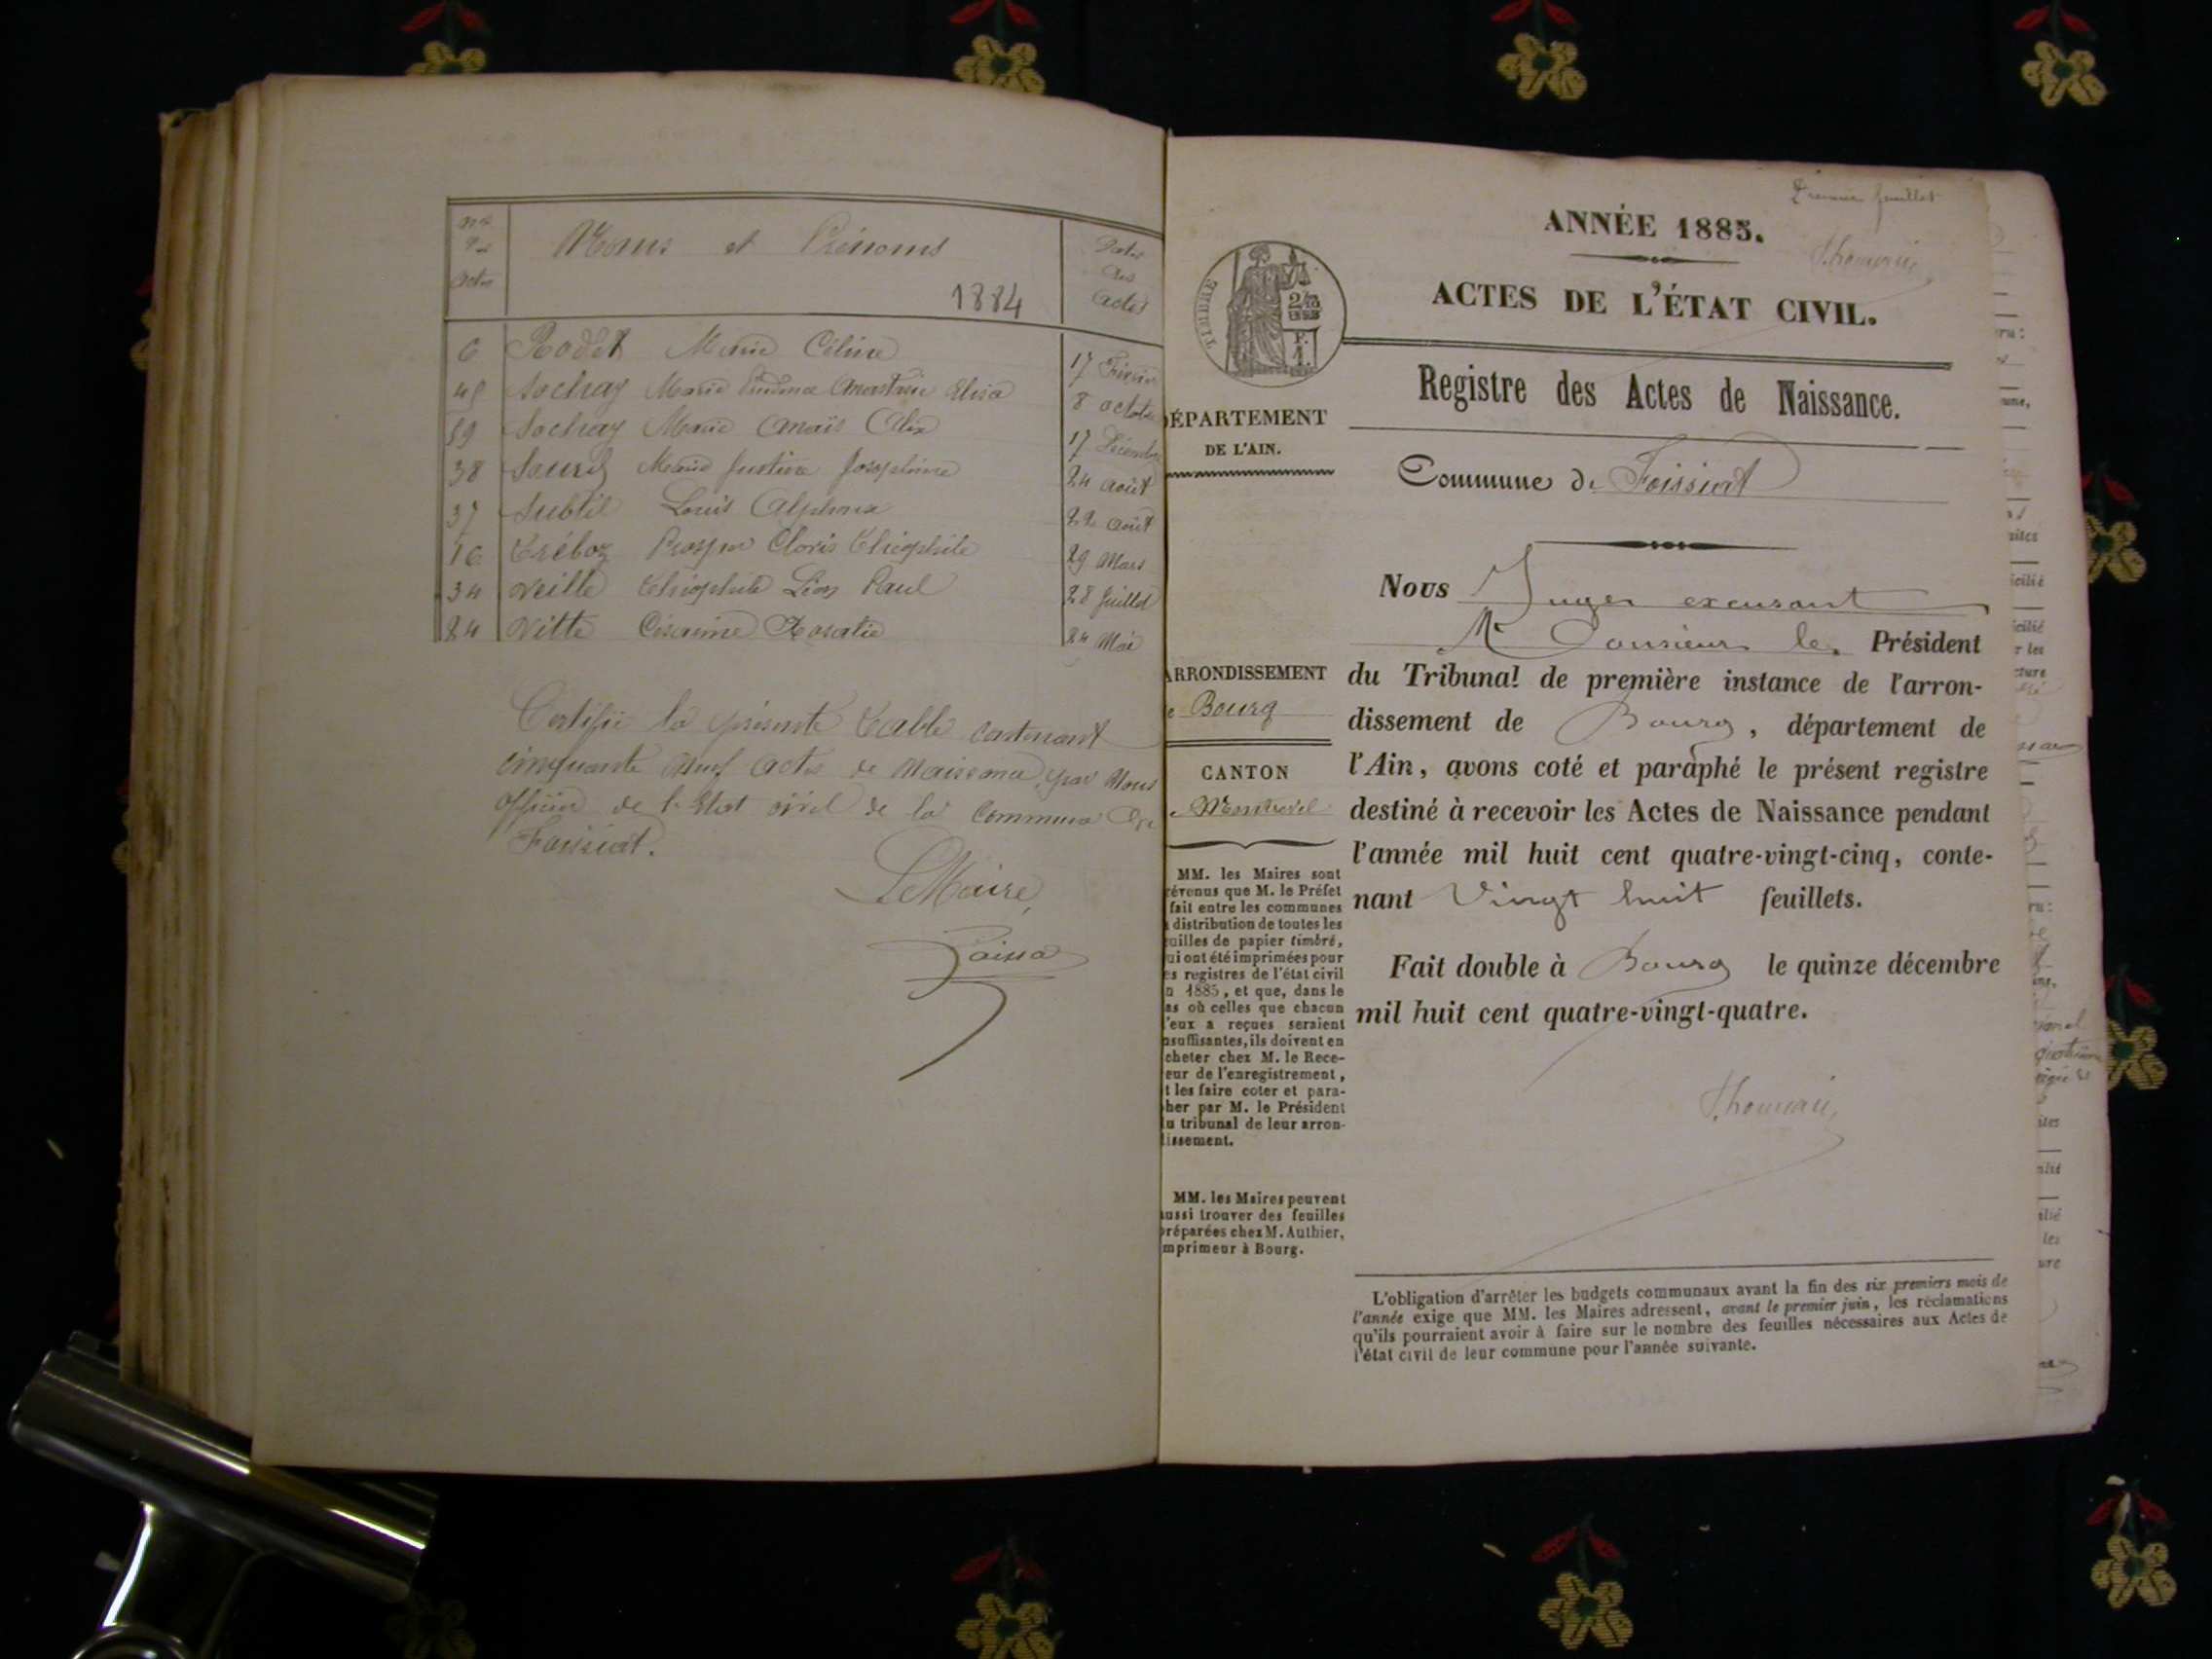 Nos
des
Actes
Noms et Prénoms
1884
Dates
des
Actes
6 Rodet Marie Céline 17 Février
45 Sochay Marie Anastasie Elisa 8 octobre
59 Sochay Marie Anaïs Alix 17 Décembre
38 Marie Justine Joséphine 24 août
37 Subtil Louis Alphonse 22 août
16 Tréboz Prosper Clovis Théophile 29 Mars
34 Veille Théophile Léon Paul 28 Juillet
24 Vitte Césarine Rosalie 24 Mai
Certifié la présente Table contenant
cinquante neuf actes de Naissance, par Nous
officier de l'Etat civil de la Commune de
Foissiat.
Le Maire,
Premier feuillet
ANNÉE 1885.
ACTES DE L'ÉTAT CIVIL.
TIMBRE
Registre des Actes de Naissance.
ÉPARTEMENT
DE L'AIN.
Commune de Foissiat
Nous Juge excusant
Monsieur le Président
ARRONDISSEMENT
e Bourg
du Tribunal de première instance de l'arron-
dissement de Bourg, département de
l'Ain, avons coté et paraphé le présent registre
destiné à recevoir les Actes de Naissance pendant
l'année mil huit cent quatre-vingt-cinq, conte-
nant Vingt huit feuillets.
Fait double à Bourg le quinze décembre
mil huit cent quatre-vingt-quatre.
CANTON
e Montrevel
MM. les Maires sont
révenus que M. le Préfet
fait entre les communes
distribution de toutes les
uilles de papier timbré,
ui ont été imprimées pour
es registres de l'état civil
n 1885, et que, dans le
as où celles que chacun
'eux a reçues seraient
nsuffisantes, ils doivent en
cheter chez M. le Rece-
eur de l'enregistrement,
t les faire coter et para-
her par M. le Président
u tribunal de leur arron-
issement.
MM. les Maires peuvent
ussi trouver des feuilles
réparées chez M. Authier,
mprimeur à Bourg.
L'obligation d'arrêter les budgets communaux avant la fin des six premiers mois de
l'année exige que MM. les Maires adressent, avant le premier juin, les réclamations
qu'ils pourraient avoir à faire sur le nombre des feuilles nécessaires aux Actes de
l'état civil de leur commune pour l'année suivante.